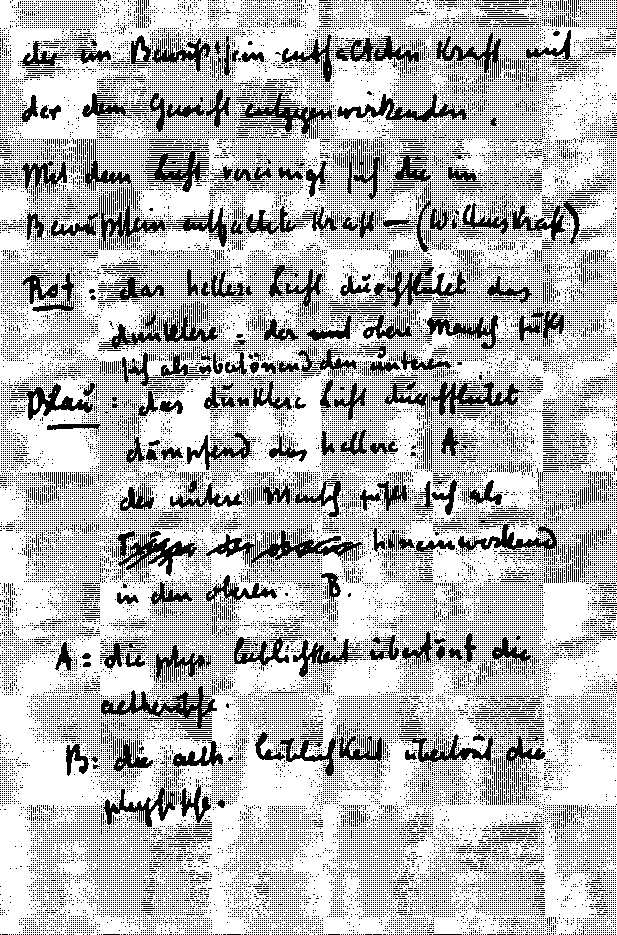 der im Bewußtsein entfalteten Kraft mit
der dem Gewicht entgegenwirkenden.
Mit dem Licht vereinigt sich die im
Bewußtsein entfaltete Kraft – (Willenskraft)
Rot: das hellere Licht durchflutet das
dunklere = der obere Mensch fühlt
sich als übertönend den unteren.
Blau: das dunklere Licht durchflutet
dämpfend das hellere: A.
der untere Mensch fühlt sich als
hineinwirkend
in den oberen. B.
A = die phys. Leiblichkeit übertönt die
aetherische.
B: die aeth. Leiblichkeit übertönt die
physische.